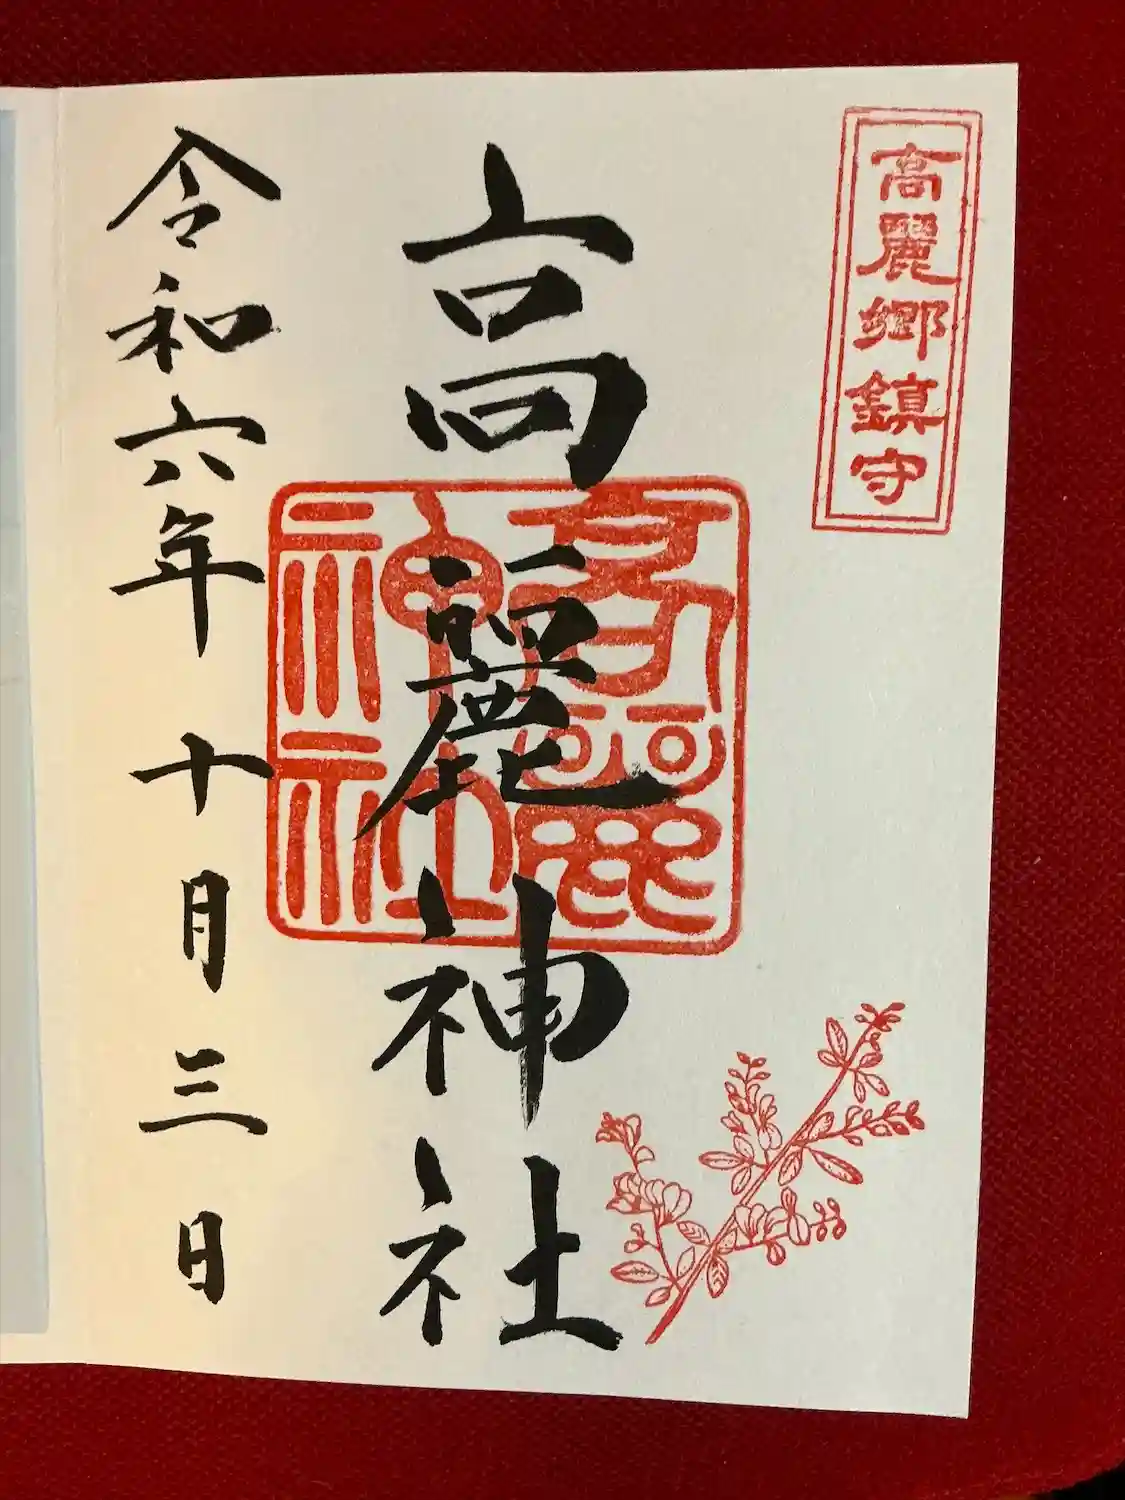 高麗郷鎮守
高麗神社
高麗神社
令和六年十月三日